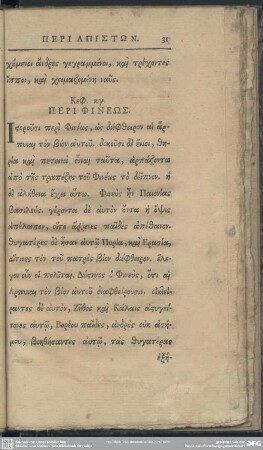 ΠΕΡΙ ΑΠΙΣΤΩΝ. 31
χόμενοι ἄνδρες γεγραμμένοι, καὶ τρέχοντες
ἵπποι, καὶ χειμαζομένη ναῦς.
Κεφ. κγ.
ΠΕΡΙ ΦΙΝΕΩΣ.
Ἱστοροῦσι περὶ Φινέως, ὡς διέφθειρον αἱ ἅρ-
πυιαι τὸν βίον αὐτοῦ. δοκοῦσι δὲ ἔνιοι, θη-
ρία καὶ πετεινὰ εἶναι ταῦτα, ἁρπάζοντα
ἀπὸ τῆς τραπέζης τοῦ Φινέως τὸ δεῖπνον. ἡ
δὲ ἀλήθεια ἔχει οὕτω. Φινεὺς ἦν Παιονίας
Βασιλεύς. γέροντα δὲ αὐτὸν ὄντα ἡ ὄψις
ἀπέλειπεν, οἵτε ἄῤῥενες παῖδες ἀπέθανον.
Θυγατέρες δὲ ἦσαν αὐτῷ Πυρία, καὶ Ερασία,
αἵτινες τὸν τοῦ πατρὸς βίον διέφθειρον. ἔλε-
γον οὖν οἱ πολῖται, Δύστηνος ὁ Φινεὺς, ὅτι αἱ
Ἅρπυιαι τὸν βίον αὐτοῦ διαφθείρουσιν.
δὲ αὐτὸν, Ζῆθος καὶ Κάλαϊς ἀςυγεί-
τονες αὐτῷ, Βορέου παῖδες, ἀνδρὸς οὐκ ἀσή-
μου, βοηθήσαντες αὐτῷ, τὰς θυγατέρας
ἐξή-